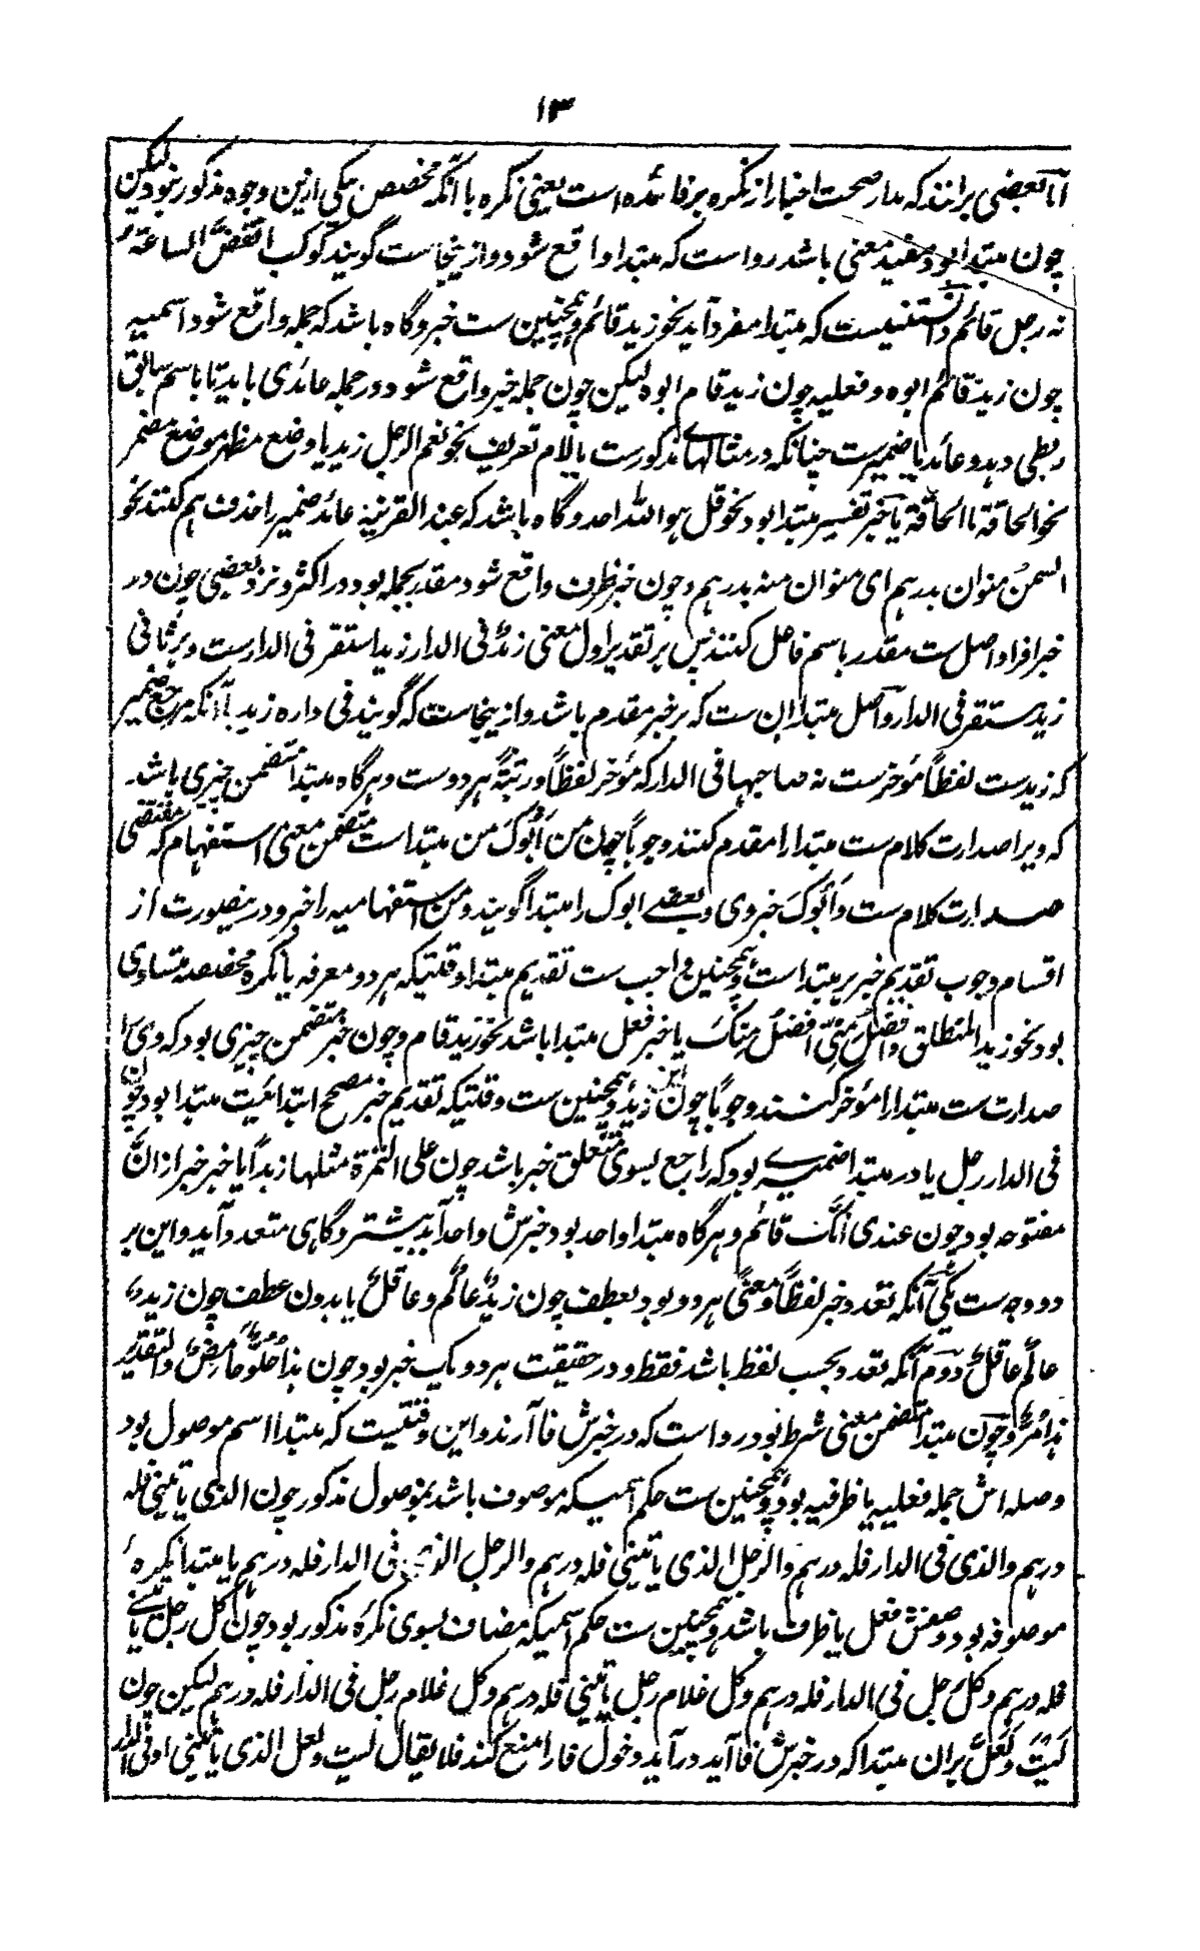 ۱۳
اما بعضی برانند که مدار صحت اخبار از نکره بر فائده است یعنی نکره با آنکه مخصص بیکی ازین وجوه مذکور نبود لیکن
چون مبتدا بود مفید معنی باشد رواست که مبتدا واقع شود و ازینجاست گویند کوکب انقض الساعة
نه رجل قائم و دانستنیست که مبتدا مفرد آید نحو زید قائم و همچنین ست خبر و گاه باشد که جمله واقع شود اسمیه
چون زید قائم ابوه و فعلیه چون زید قام ابوه لیکن چون جمله خبر واقع شود در جمله عائدی باید تا باسم سابق
ربطی دهد و عائد یا ضمیرست چنانکه در مثالهای مذکورست یا لام تعریف نحو نعم الرجل زید یا وضع مظهر موضع مضمر
نحو الحاقة ما الحاقة یا خبر تفسیر مبتدا بود نحو قل هو الله احد و گاه باشد که عند القرینة عائد ضمیر را حذف هم کنند نحو
السمن منوان بدرهم ای منوان منه بدرهم و چون خبر ظرف واقع شود مقدر بجمله بود در اکثر و نزد بعضی چون در
خبر افراد اصل ست مقدر باسم فاعل کنند پس بر تقدیر اول معنی زید فی الدار زید استقر فی الدارست و بر ثانی
زید مستقر فی الدار و اصل مبتدا آن ست که بر خبر مقدم باشد و ازینجاست که گویند فی داره زید با آنکه مرجع ضمیر
که زیدست لفظاً مؤخرست نه صاحبها فی الدار که مؤخر لفظاً و رتبةً هر دوست و هر گاه مبتدا متضمن چیزی باشد
که ویرا صدارت کلام ست مبتدا را مقدم کنند وجوباً چون من ابوک من مبتداست متضمن معنی استفهام که مقتضی
صدارت کلام ست و ابوک خبر وی و بعضے ابوک را مبتدا گویند و من استفهامیه را خبر و درینصورت از
اقسام وجوب تقدیم خبر بر مبتداست و همچنین واجب ست تقدیم مبتدا وقتیکه هر دو معرفه یا نکره مخصصه متساوی
بود نحو زید المنطلق و افضل منی افضل منک یا خبر فعل مبتدا باشد نحو زید قام و چون خبر متضمن چیزی بود که وی را
صدارت ست مبتدا را مؤخر کنند وجوباً چون این زید و همچنین ست وقتیکه تقدیم خبر مصحح ابتدائیت مبتدا بود چون
فی الدار رجل یا در مبتدا ضمیرے بود که راجع بسوی متعلق خبر باشد چون علی التمرة مثلها زبداً یا خبر خبر از انّ
مفتوحه بود چون عندی انک قائم و هر گاه مبتدا واحد بود خبرش واحد آید بیشتر و گاهی متعدد آید و این بر
دو وجه ست یکی آنکه تعدد خبر لفظاً و معنیً هر دو بود بعطف چون زید عالم و عاقل یا بدون عطف چون زید
عالم عاقل دوم آنکه تعدد بحسب لفظ باشد فقط و در حقیقت هر دو یک خبر بود چون هذا حلو حامض و التقدیر
هذا مز و چون مبتدا متضمن معنی شرط بود رواست که در خبرش فا آرند و این وقتیست که مبتدا اسم موصول بود
وصله اش جمله فعلیه یا ظرفیه بود و همچنین ست حکم اسمیکه موصوف باشد بموصول مذکور چون الذی یاتینی فله
درهم و الذی فی الدار فله درهم و الرجل الذی یاتینی فله درهم و الرجل الذی فی الدار فله درهم یا مبتدا نکرهٔ
موصوفه بود و صفتش فعل یا ظرف باشد و همچنین ست حکم اسمیکه مضاف بسوی نکرهٔ مذکور بود چون کل رجل یاتینے
فله درهم و کل رجل فی الدار فله درهم و کل غلام رجل یاتینی فله درهم و کل غلام رجل فی الدار فله درهم لیکن چون
لیت و لعل بران مبتدا که در خبرش فا آید در آید دخول فا را منع کند فلا یقال لیت و لعل الذی یاتینی او فی الدار